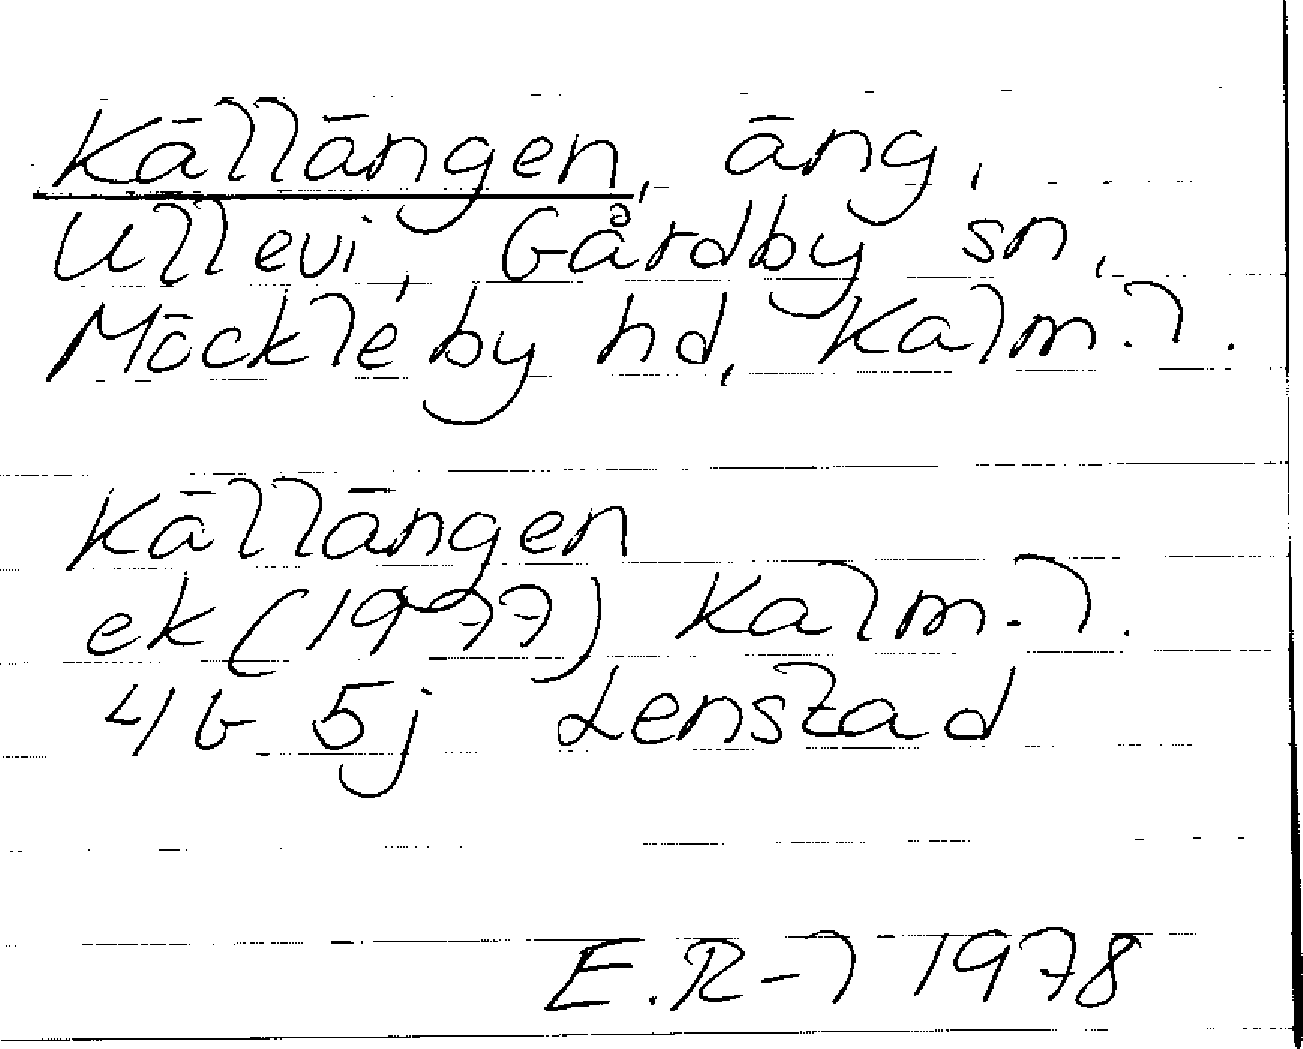 Källängen, äng,
Ullevi, Gårdby sn,
Möckleby hd, Kalm. l.
Källängen
ek (1977) Kalm. l.
4G 5j Lenstad
E. R-l 1978